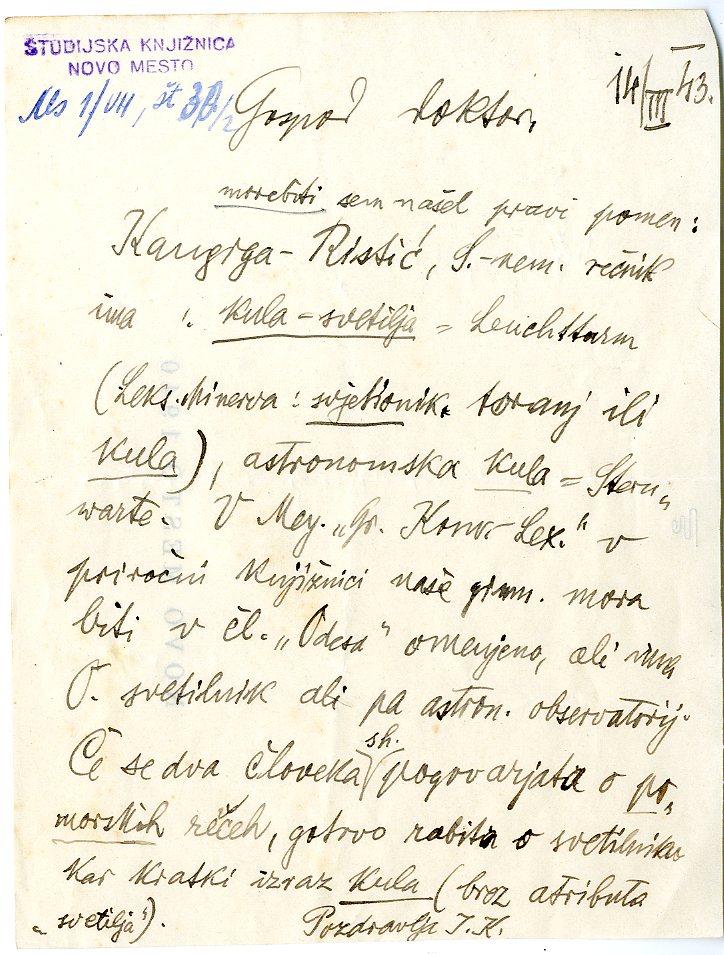 ŠTUDIJSKA KNJIŽNICA
NOVO MESTO
Ms 1/VII, št 38/2
14/III 43.
Gospod doktor,
morebiti sem našel pravi pomen:
Kangrga-Ristić, S.-nem. rečnik
ima : kula-svetilja = Leuchtturm
(Leks. Minerva: svjetionik, toranj ili
kula), astronomska kula = Stern-
warte. V Mey. „Gr. Konv.-Lex.“ v
priročni knjižnici naše gimn. mora
biti v čl. „Odesa“ omenjeno, ali ima
O. svetilnik ali pa astron. observatorij.
Če se dva človeka sh. pogovarjata o po-
morskih rečeh, gotovo rabita o svetilniku
kar kratki izraz kula (brez atributa
„svetilja“).
Pozdravlja I. K.